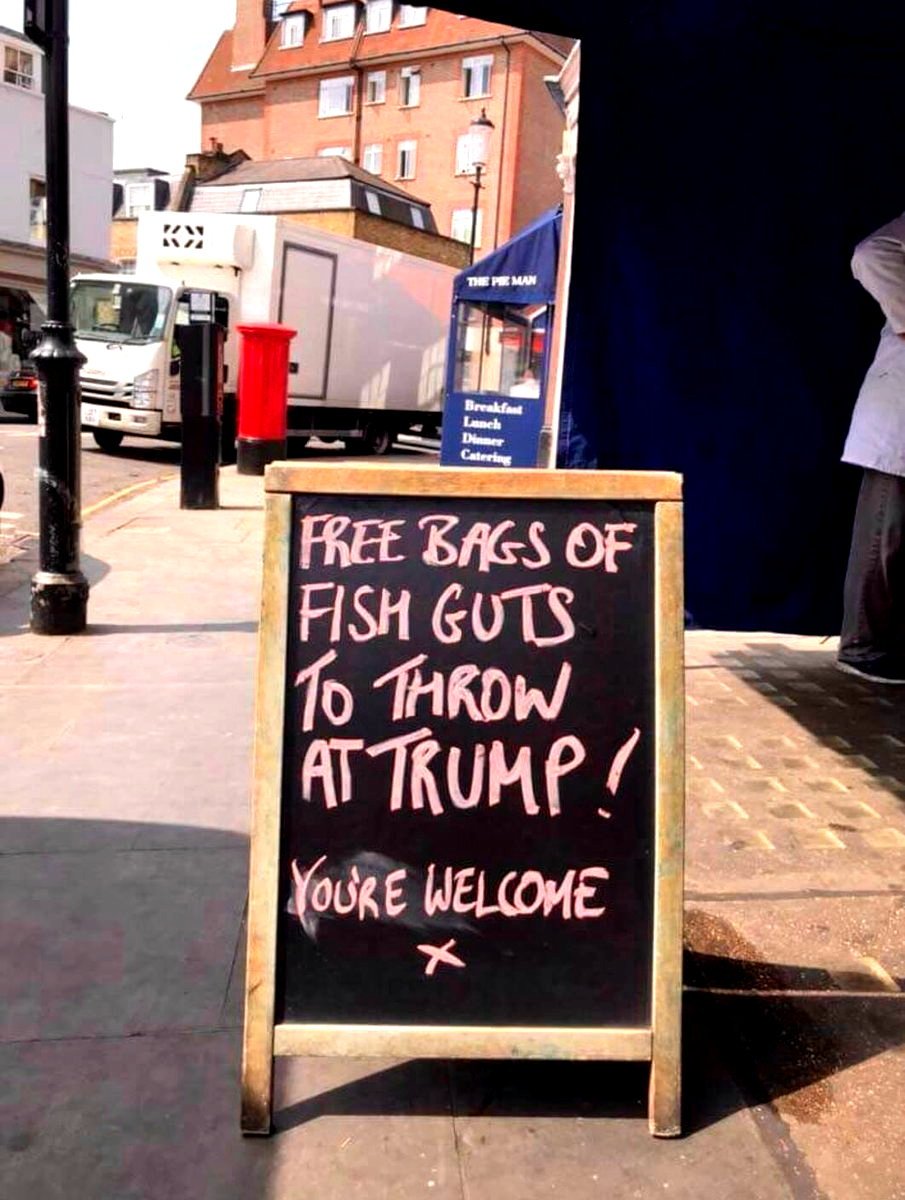 THE PIE MAN
Breakfast
Lunch
Dinner
Catering
FREE BAGS OF
FISH GUTS
TO THROW
AT TRUMP!
YOU'RE WELCOME
X